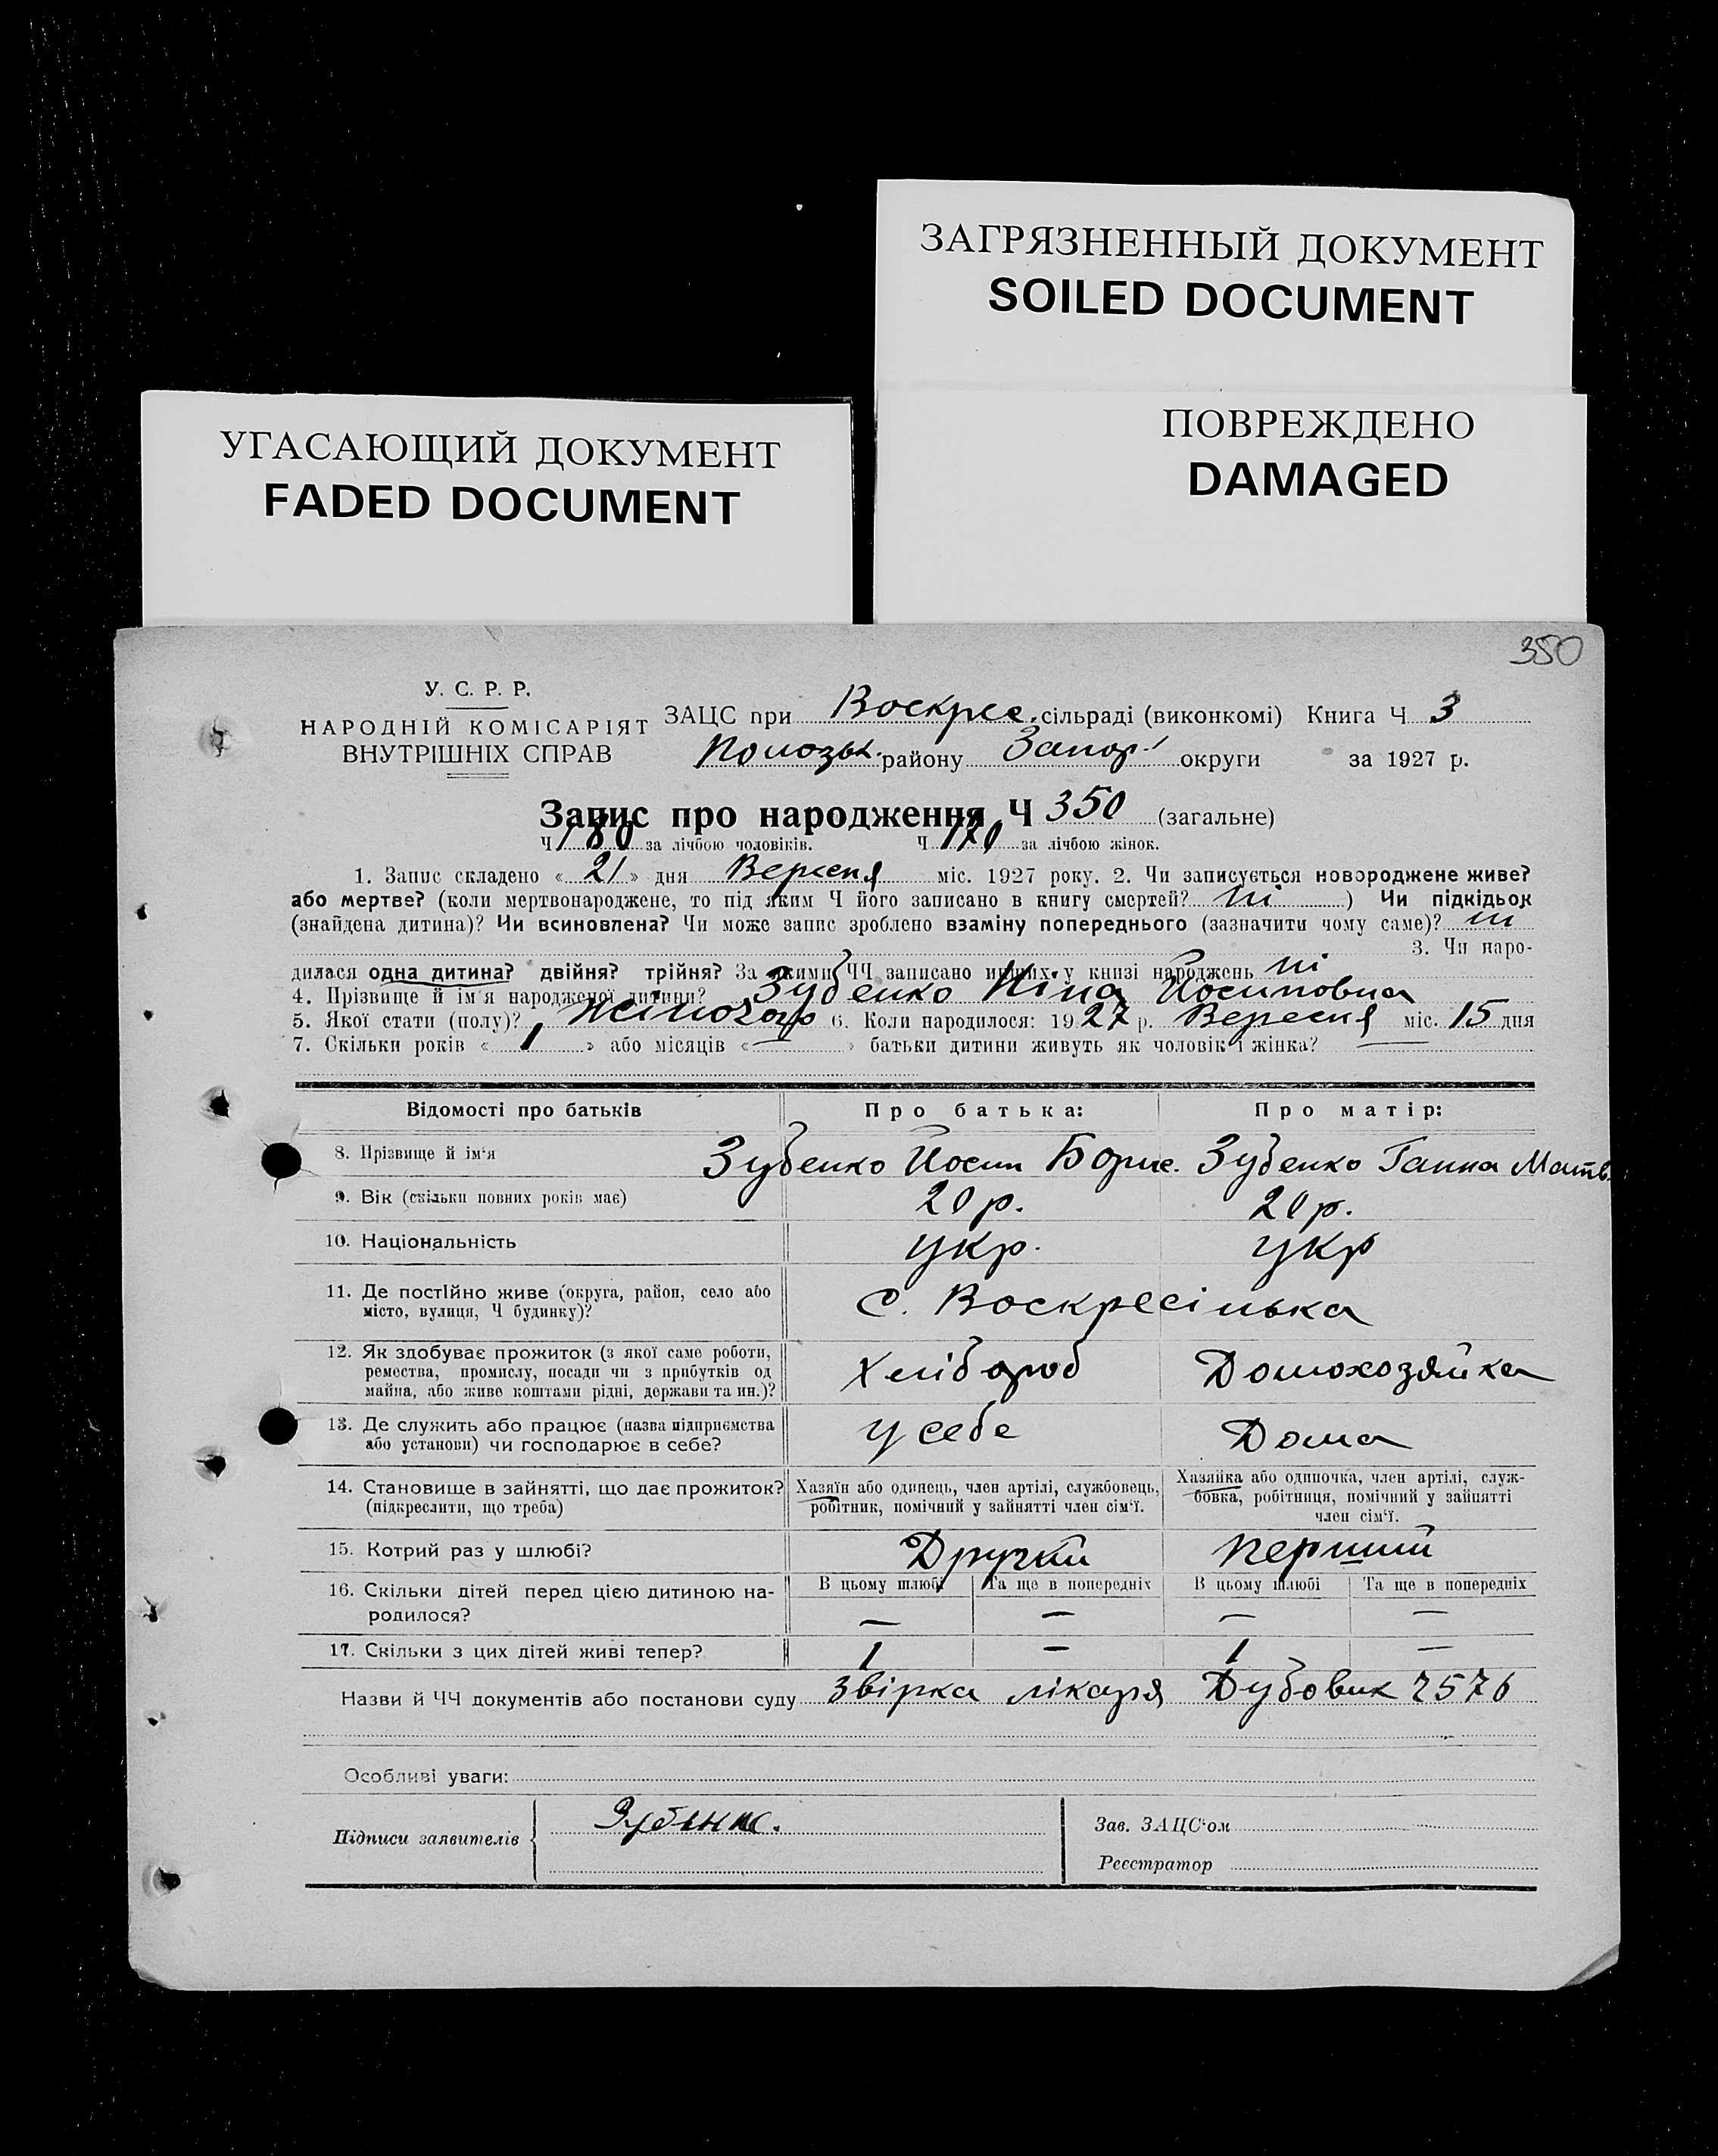 ЗАГРЯЗНЕННЫЙ ДОКУМЕНТ
SOILED DOCUMENT
УГАСАЮЩИЙ ДОКУМЕНТ
FADED DOCUMENT
ПОВРЕЖДЕНО
DAMAGED
350
У. С. Р. Р.
НАРОДНІЙ КОМІСАРІЯТ
ВНУТРІШНІХ СПРАВ
ЗАЦС при Воскрес. сільраді (виконкомі) Книга Ч 3
Пологзьк. району Запор. округи за 1927 р.
Запис про народження Ч 350 (загальне)
Ч 180 за лічбою чоловіків. Ч 170 за лічбою жінок.
1. Запис складено « 21 » дня Вересня міс. 1927 року. 2. Чи записується новороджене живе?
або мертве? (коли мертвонароджене, то під яким Ч його записано в книгу смертей? ні ) Чи підкідьок
(знайдена дитина)? Чи всиновлена? Чи може запис зроблено взаміну попереднього (зазначити чому саме)? ні
3. Чи наро-
дилася одна дитина? двійня? трійня? За якими ЧЧ записано инших у книзі народжень ні
4. Прізвище й ім'я народженої дитини? Зубенко Ніна Йосиповна
5. Якої стати (полу)? Жіночого 6. Коли народилося: 1927 р. Вересня міс. 15 дня
7. Скільки років « 1 » або місяців « — » батьки дитини живуть як чоловік і жінка? —
Відомості про батьків Про батька: Про матір:
8. Прізвище й ім'я Зубенко Йосип Борис. Зубенко Ганна Матв.
9. Вік (скільки повних років має) 20 р. 20 р.
10. Національність укр. укр
11. Де постійно живе (округа, район, село або
місто, вулиця, Ч будинку)? с. Воскресінька
12. Як здобуває прожиток (з якої саме роботи,
ремества, промислу, посади чи з прибутків од
майна, або живе коштами рідні, держави та ин.)? Хлібороб Домохозяйка
13. Де служить або працює (назва підприємства
або установи) чи господарює в себе? у себе Дома
14. Становище в зайнятті, що дає прожиток?
(підкреслити, що треба)
Хазяїн або одинець, член артілі, службовець,
робітник, помічний у зайнятті член сім'ї.
Хазяйка або одиночка, член артілі, служ-
бовка, робітниця, помічний у зайнятті
член сім'ї.
15. Котрий раз у шлюбі? Другий перший
16. Скільки дітей перед цією дитиною на-
родилося?
В цьому шлюбі Та ще в попередніх В цьому шлюбі Та ще в попередніх
— — — —
17. Скільки з цих дітей живі тепер? 1 — 1 —
Назви й ЧЧ документів або постанови суду звірка лікаря Дубовик 2576
Особливі уваги:
Підписи заявителів Зубенко.
Зав. ЗАЦС'ом
Реєстратор